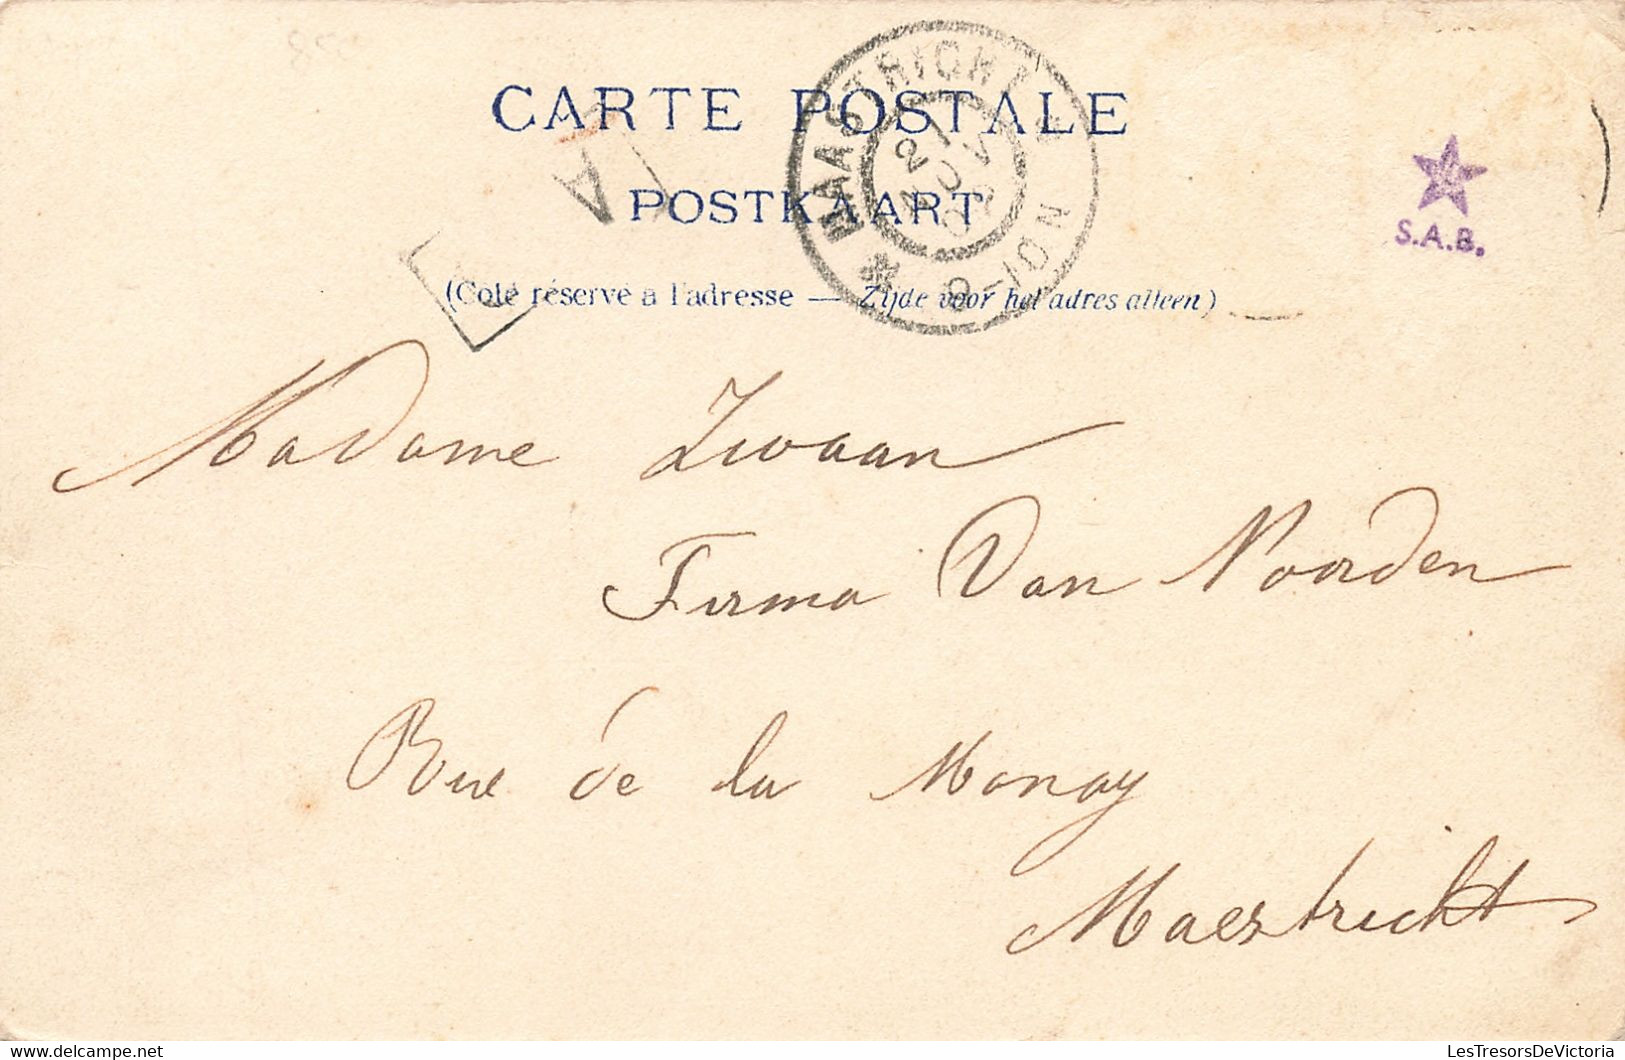 CARTE POSTALE
POSTKAART
(Coté réservé à l'adresse — Zijde voor het adres alleen)
MAASTRICHT
21
NOV
8-10N
A
S.A.B.
Madame Zwaan
Firma Van Noorden
Rue de la Monay
Maestricht
LesTresorsDeVictoria